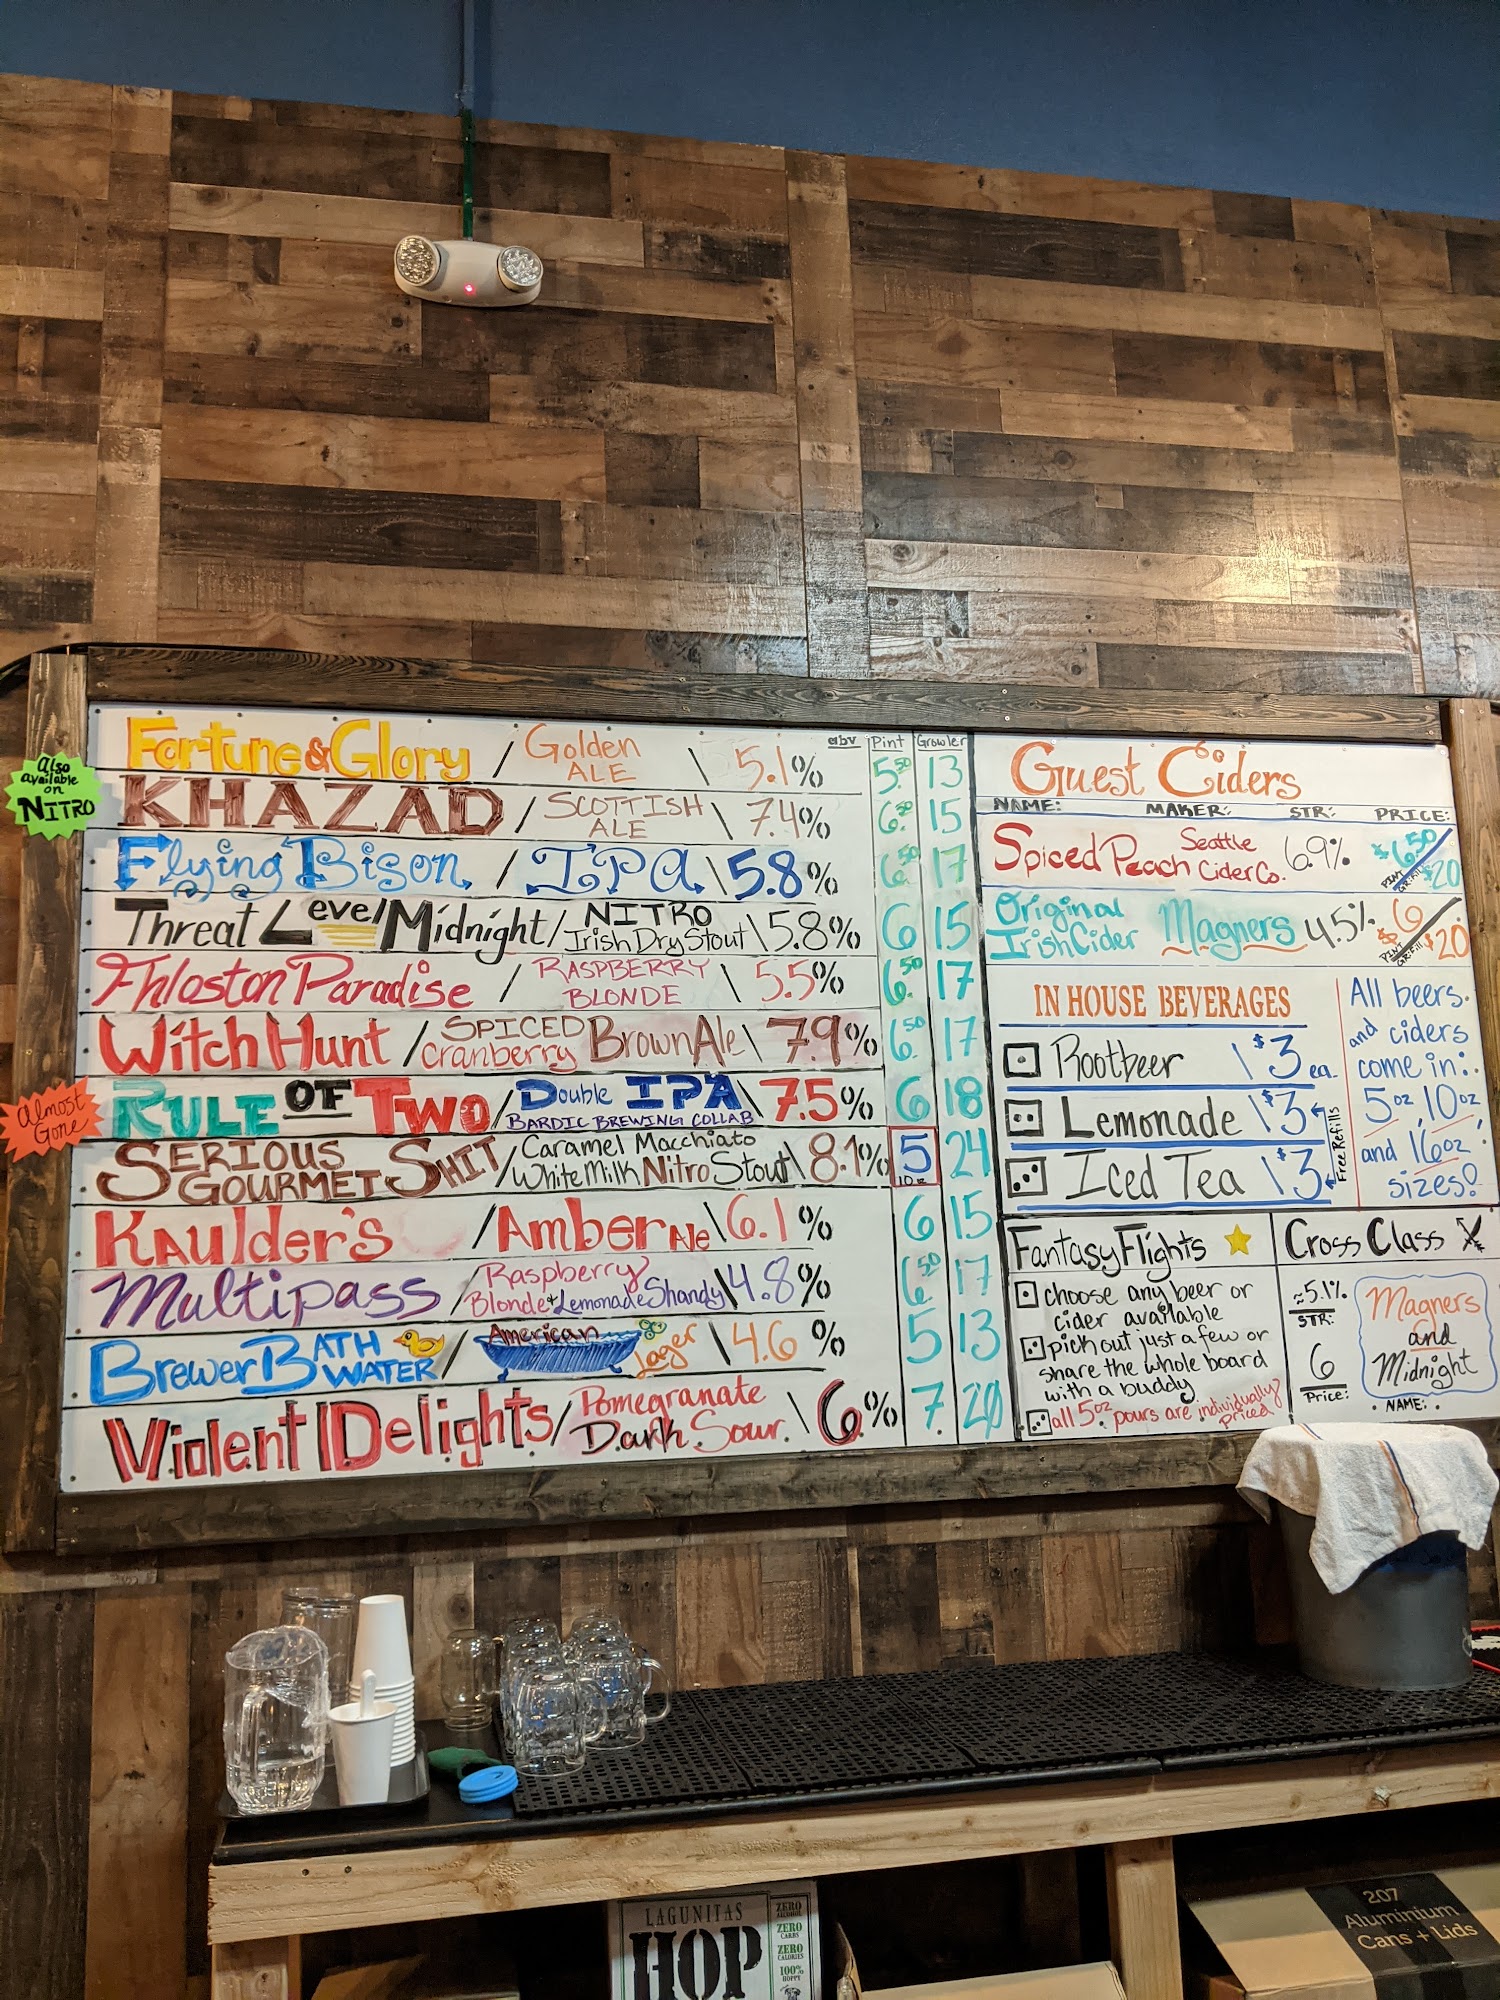 abv Pint Growler
Fortune & Glory / Golden ALE \ 5.1% 5.50 13
Also available on NITRO
KHAZAD / SCOTTISH ALE \ 7.4% 6.50 15
Flying Bison / IPA \ 5.8% 6.50 17
Threat Level Midnight / NITRO Irish Dry Stout \ 5.8% 6 15
Fhloston Paradise / RASPBERRY BLONDE \ 5.5% 6.50 17
Witch Hunt / SPICED Cranberry Brown Ale \ 7.9% 6.50 17
Almost Gone
RULE OF TWO / Double IPA BARDIC BREWING COLLAB \ 7.5% 6 18
SERIOUS GOURMET SHIT / Caramel Macchiato White Milk Nitro Stout \ 8.1% 5 10 oz 24
KAulder's / Amber Ale \ 6.1% 6 15
Multipass / Raspberry Blonde + Lemonade Shandy \ 4.8% 6.50 17
Brewer BATH WATER / American Lager \ 4.6% 5 13
Violent Delights / Pomegranate Dark Sour \ 6% 7 20
Guest Ciders
NAME: MAKER: STR: PRICE:
Spiced Peach Seattle Cider Co. 6.9% $6.50 PINT $20
Original Irish Cider Magners 4.5% $6 PINT $20
IN HOUSE BEVERAGES
Rootbeer \ $3 ea.
Lemonade \ $3
Iced Tea \ $3
Free Refills
All beers
and ciders
come in:
5oz, 10oz,
and 16oz
sizes!
Fantasy Flights
choose any beer or
cider available
pick out just a few or
share the whole board
with a buddy
all 5oz pours are individually priced
Cross Class
~5.1%
STR:
6
Price:
Magners
and
Midnight
NAME:
LAGUNITAS
HOP
ZERO ALCOHOL
ZERO CARBS
ZERO CALORIES
100% HOPPY
207
Aluminium
Cans + Lids